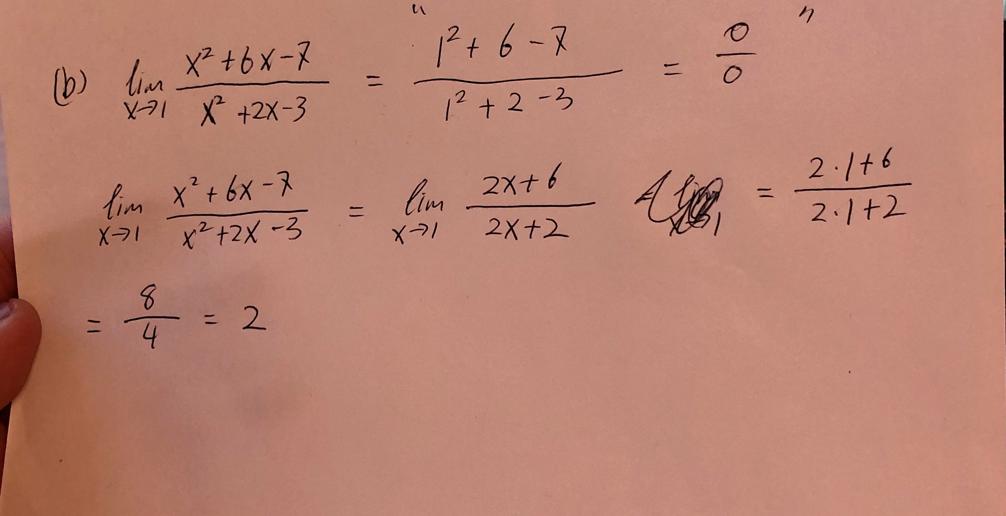 (b) lim x→1 (x² + 6x - 7)/(x² + 2x - 3) = " (1² + 6 - 7)/(1² + 2 - 3) = 0/0 "
lim x→1 (x² + 6x - 7)/(x² + 2x - 3) = lim x→1 (2x + 6)/(2x + 2) = (2·1 + 6)/(2·1 + 2)
= 8/4 = 2